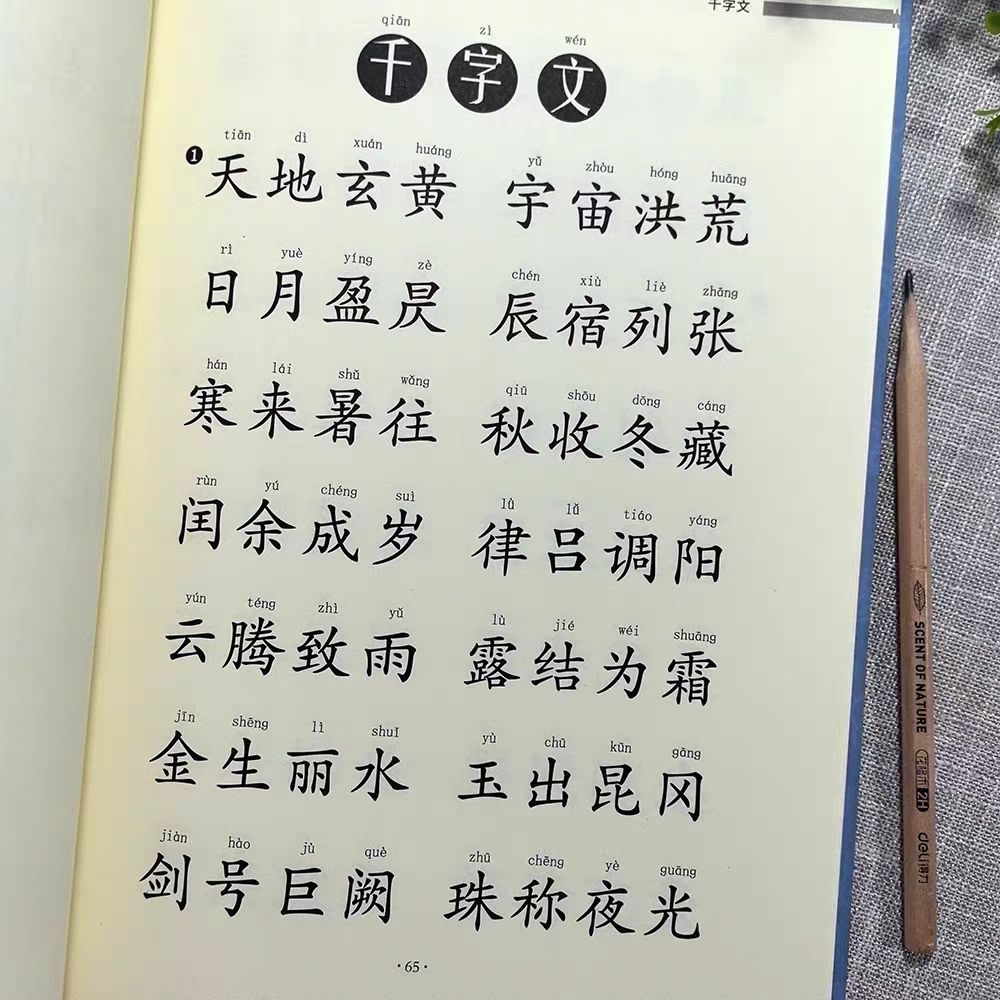 千字文
qiān zì wén
千字文
tiān dì xuán huáng yǔ zhòu hóng huāng
❶天地玄黄 宇宙洪荒
rì yuè yíng zè chén xiù liè zhāng
日月盈昃 辰宿列张
hán lái shǔ wǎng qiū shōu dōng cáng
寒来暑往 秋收冬藏
rùn yú chéng suì lǜ lǚ tiáo yáng
闰余成岁 律吕调阳
yún téng zhì yǔ lù jié wéi shuāng
云腾致雨 露结为霜
jīn shēng lì shuǐ yù chū kūn gāng
金生丽水 玉出昆冈
jiàn hào jù què zhū chēng yè guāng
剑号巨阙 珠称夜光
·65·
SCENT OF NATURE
2H
deli得力